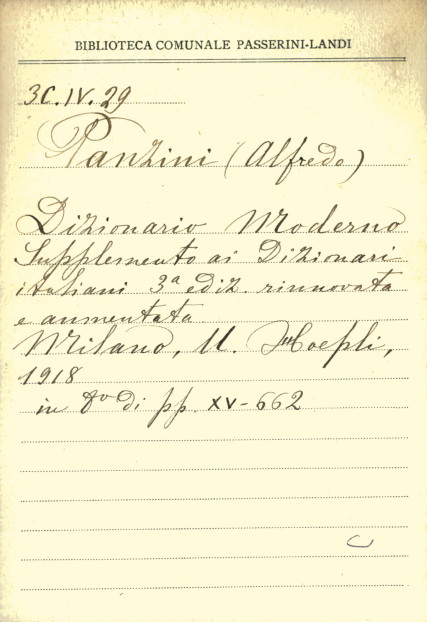 BIBLIOTECA COMUNALE PASSERINI-LANDI
3C.IV.29
Panzini (Alfredo)
Dizionario Moderno
Supplemento ai Dizionari
italiani 3ª ediz. rinnovata
e aumentata
Milano, U. Hoepli,
1918
in 8º di pp. XV-662